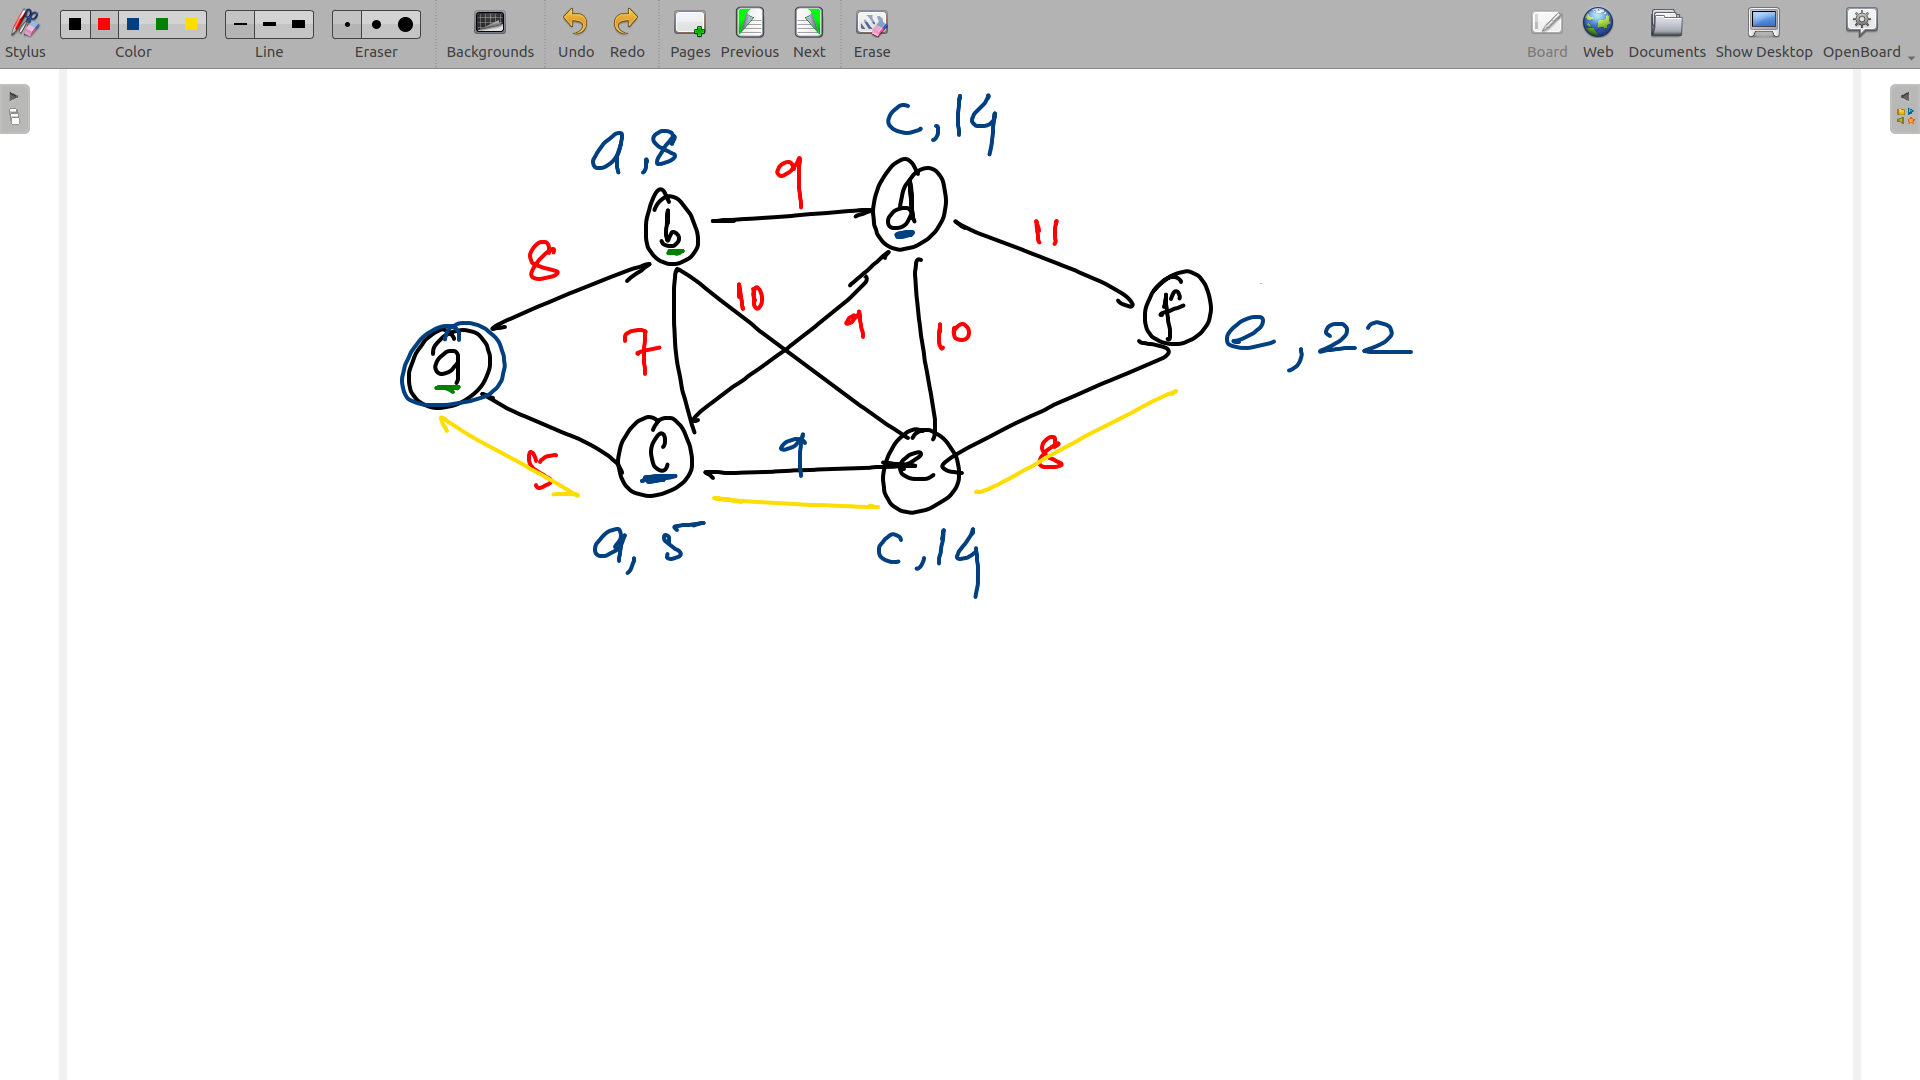 Stylus Color Line Eraser Backgrounds Undo Redo Pages Previous Next Erase Board Web Documents Show Desktop OpenBoard
c,14
a,8
9
d
b
11
8
10
f
9
10
e,22
7
a
c
9
e
8
5
a,5
c,14